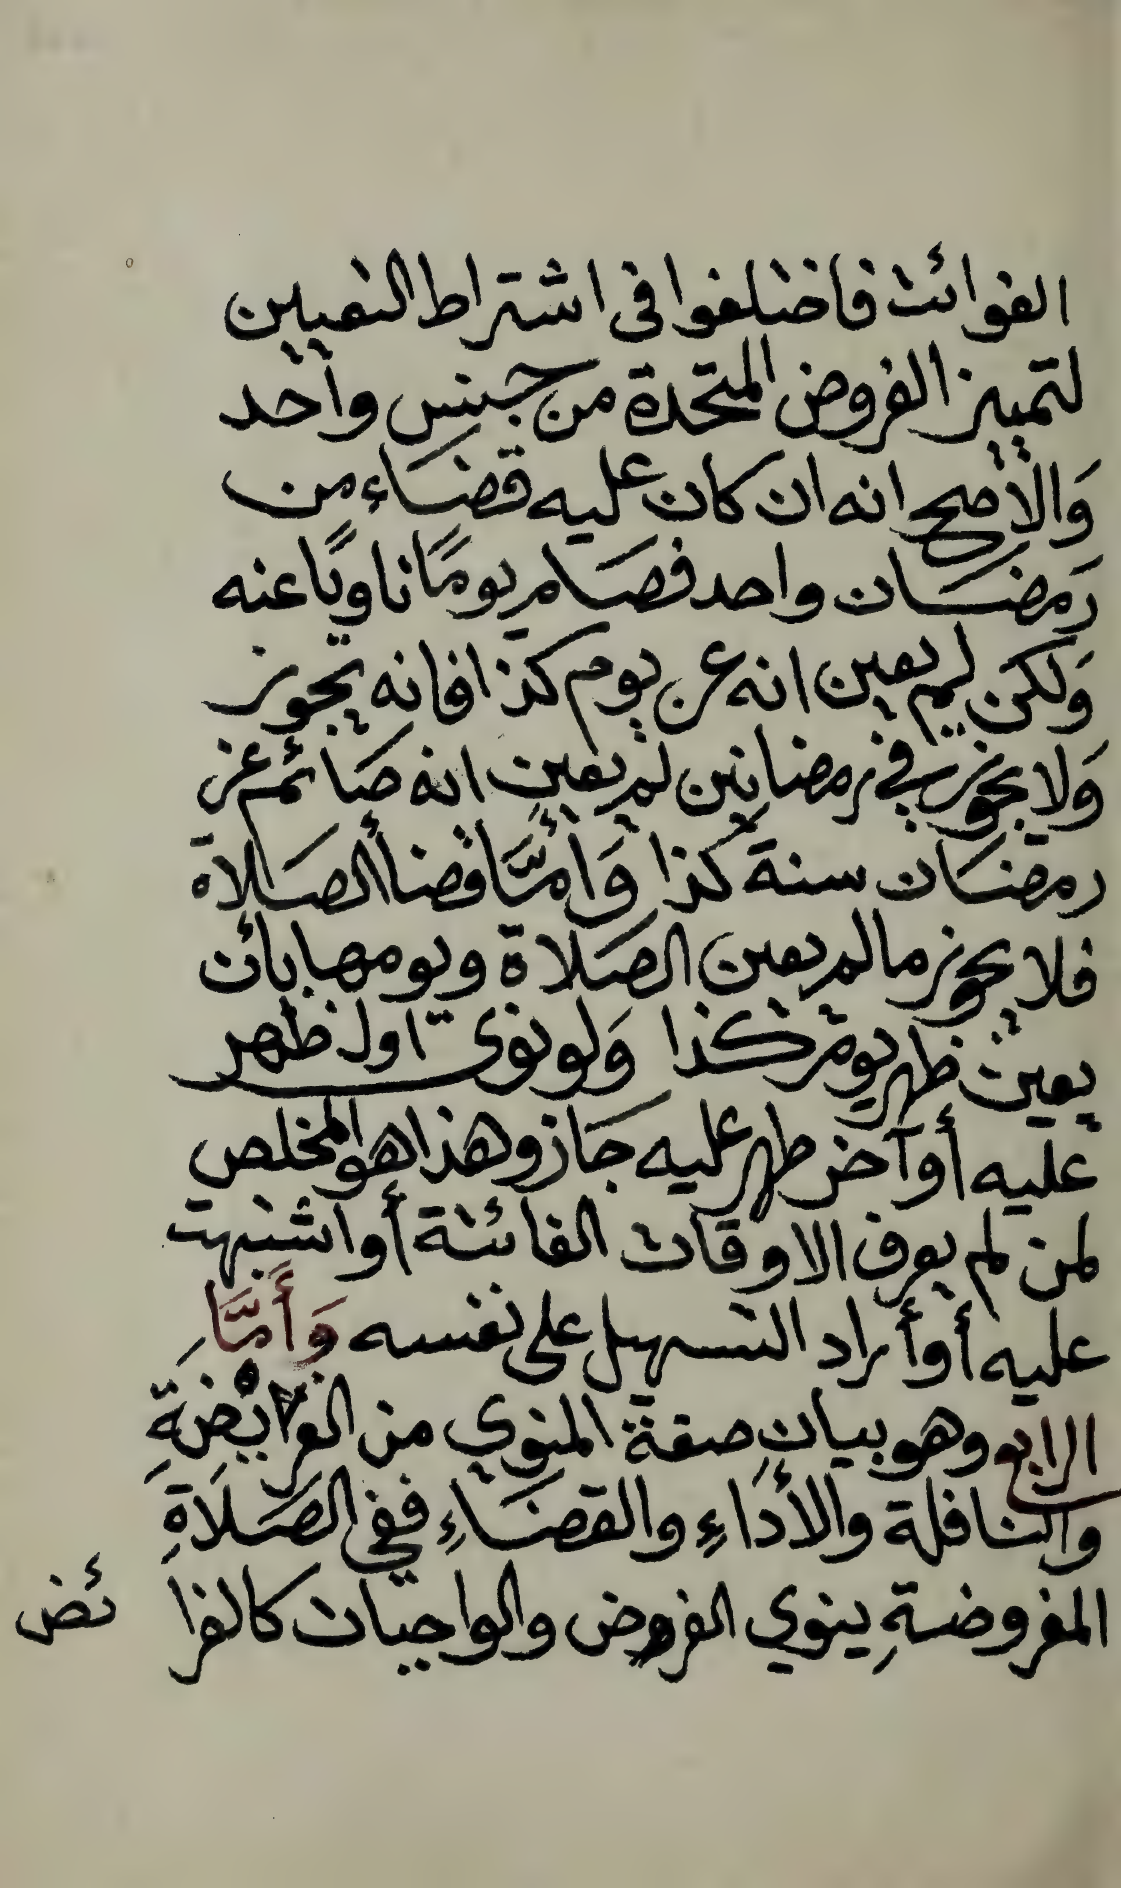 الفوائت فاختلفوا في اشتراط التعيين
لتمييز الفروض المتحدة من جنس واحد
وَالأصح انه ان كان عليه قضَاء من
رَمضَان واحد فصَام يومًا ناويًا عنه
وَلكن لم يعين انه عن يوم كذا فانه يجوز
وَلا يجوز في رمضانين لم يعين انه صَائم عن
رمضَان سنة كذا وَأمَّا قضأ الصَلاة
فلا يجوز ما لم يعين الصَلاة ويومها بأن
يعين ظهر يوم كذا وَلو نوى اول ظهر
عليه أو آخر ظهر عليه جَاز وهذا هو المخلص
لمن لم يعرف الاوقات الفائتة أو اشتبهت
عليه أو أراد التسهيل على نفسه وَأَمَّا
الرابع وهو بيان صفة المنوي من الفرايضَةِ
والنافلة والأدَاءِ والقضَاءِ ففي الصَلَاةِ
المفروضةِ ينوي الفروض والواجبات كالفرا ئض